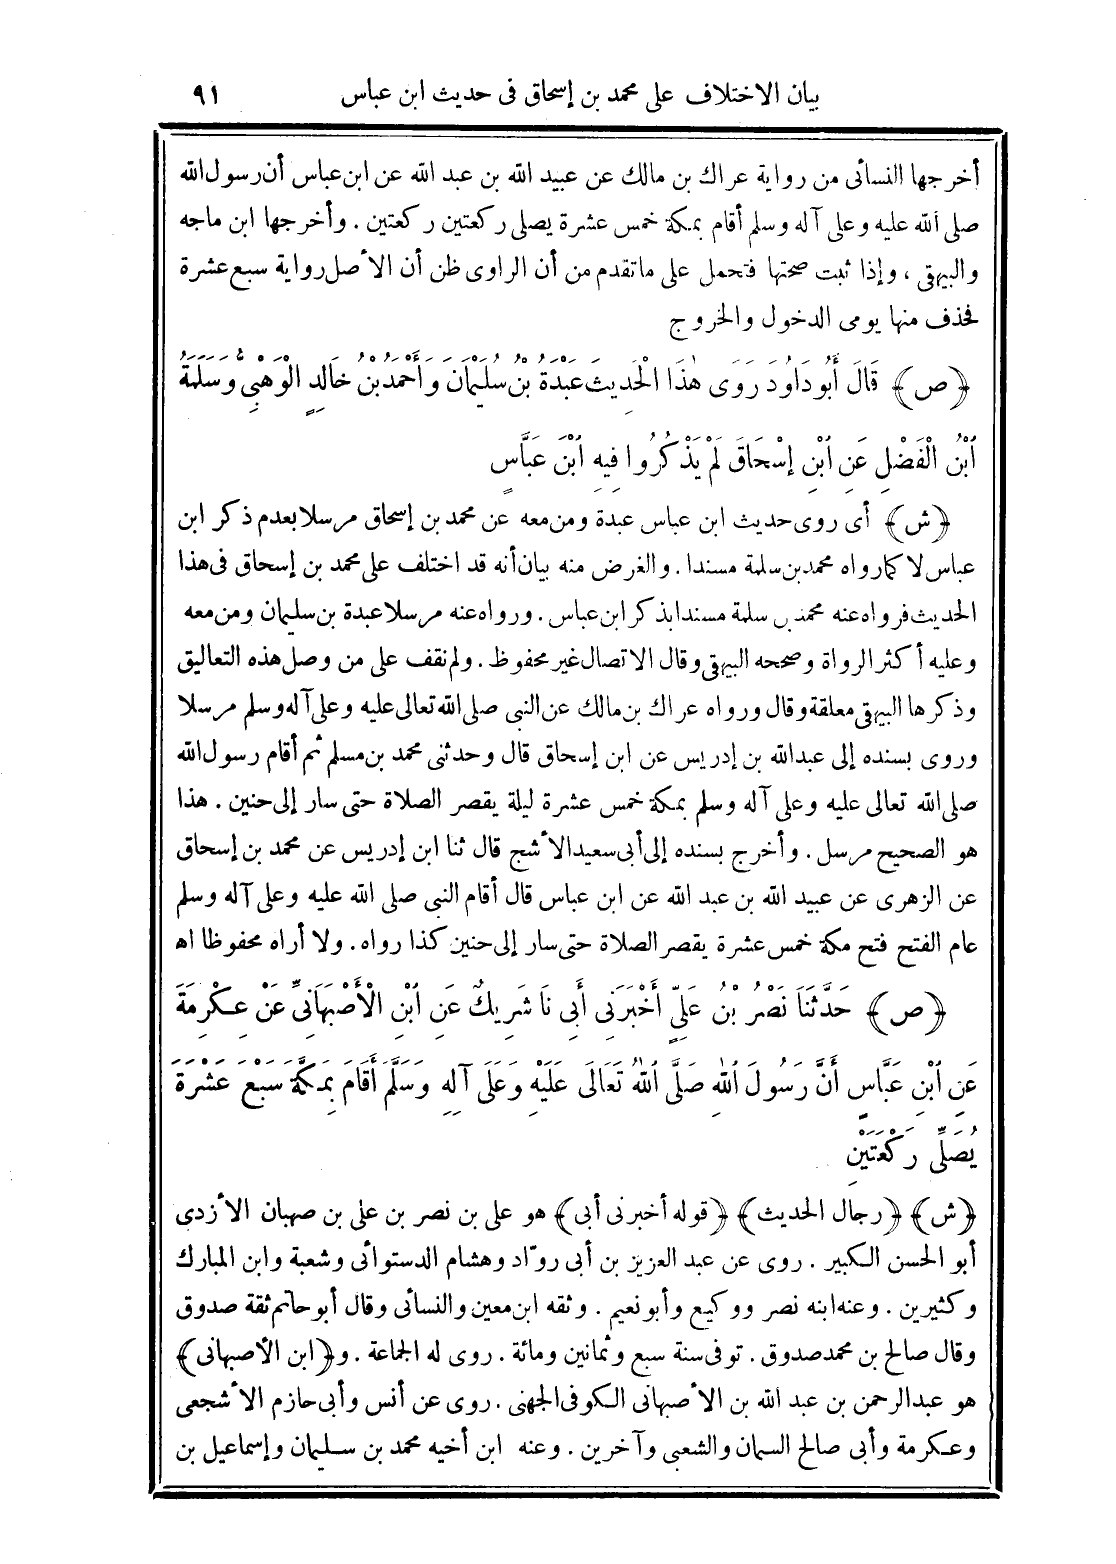 بيان الاختلاف على محمد بن إسحاق فى حديث ابن عباس ٩١
أخرجها النسائى من رواية عراك بن مالك عن عبيد الله بن عبد الله عن ابن عباس أن رسول الله
صلى الله عليه وعلى آله وسلم أقام بمكة خمس عشرة يصلى ركعتين ركعتين . وأخرجها ابن ماجه
والبيهقى ، وإذا ثبت صحتها فتحمل على ماتقدم من أن الراوى ظن أن الأصل رواية سبع عشرة
فحذف منها يومى الدخول والخروج
﴿ص﴾ قَالَ أَبُو دَاوُدَ رَوَى هٰذَا الْحَدِيثَ عَبْدَةُ بْنُ سُلَيْمَانَ وَأَحْمَدُ بْنُ خَالِدٍ الْوَهْبِىُّ وَسَلَمَةُ
ابْنُ الْفَضْلِ عَنِ ابْنِ إِسْحَاقَ لَمْ يَذْكُرُوا فِيهِ ابْنَ عَبَّاسٍ
﴿ش﴾ أى روى حديث ابن عباس عبدة ومن معه عن محمد بن إسحاق مرسلا بعدم ذكر ابن
عباس لا كما رواه محمد بن سلمة مسندا . والغرض منه بيان أنه قد اختلف على محمد بن إسحاق فى هذا
الحديث فرواه عنه محمد بن سلمة مسندا بذكر ابن عباس . ورواه عنه مرسلا عبدة بن سليمان ومن معه
وعليه أكثر الرواة وصححه البيهقى وقال الاتصال غير محفوظ . ولم نقف على من وصل هذه التعاليق
وذكرها البيهقى معلقة وقال ورواه عراك بن مالك عن النبى صلى الله تعالى عليه وعلى آله وسلم مرسلا
وروى بسنده إلى عبد الله بن إدريس عن ابن إسحاق قال وحدثنى محمد بن مسلم ثم أقام رسول الله
صلى الله تعالى عليه وعلى آله وسلم بمكة خمس عشرة ليلة يقصر الصلاة حتى سار إلى حنين . هذا
هو الصحيح مرسل . وأخرج بسنده إلى أبى سعيد الأشج قال ثنا ابن إدريس عن محمد بن إسحاق
عن الزهرى عن عبيد الله بن عبد الله عن ابن عباس قال أقام النبى صلى الله عليه وعلى آله وسلم
عام الفتح فتح مكة خمس عشرة يقصر الصلاة حتى سار إلى حنين كذا رواه . ولا أراه محفوظا اه
﴿ص﴾ حَدَّثَنَا نَصْرُ بْنُ عَلِىٍّ أَخْبَرَنِى أَبِى نَا شَرِيكٌ عَنِ ابْنِ الْأَصْبَهَانِىِّ عَنْ عِكْرِمَةَ
عَنِ ابْنِ عَبَّاسٍ أَنَّ رَسُولَ اللهِ صَلَّى اللهُ تَعَالَى عَلَيْهِ وَعَلَى آلِهِ وَسَلَّمَ أَقَامَ بِمَكَّةَ سَبْعَ عَشْرَةَ
يُصَلِّى رَكْعَتَيْنِ
﴿ش﴾ ﴿رجال الحديث﴾ ﴿قوله أخبرنى أبى﴾ هو على بن نصر بن على بن صهبان الأزدى
أبو الحسن الكبير . روى عن عبد العزيز بن أبى روّاد وهشام الدستوائى وشعبة وابن المبارك
وكثيرين . وعنه ابنه نصر ووكيع وأبو نعيم . وثقه ابن معين والنسائى وقال أبو حاتم ثقة صدوق
وقال صالح بن محمد صدوق . توفى سنة سبع وثمانين ومائة . روى له الجماعة . و﴿ابن الأصبهانى﴾
هو عبد الرحمن بن عبد الله بن الأصبهانى الكوفى الجهنى . روى عن أنس وأبى حازم الأشجعى
وعكرمة وأبى صالح السمان والشعبى وآخرين . وعنه ابن أخيه محمد بن سليمان وإسماعيل بن